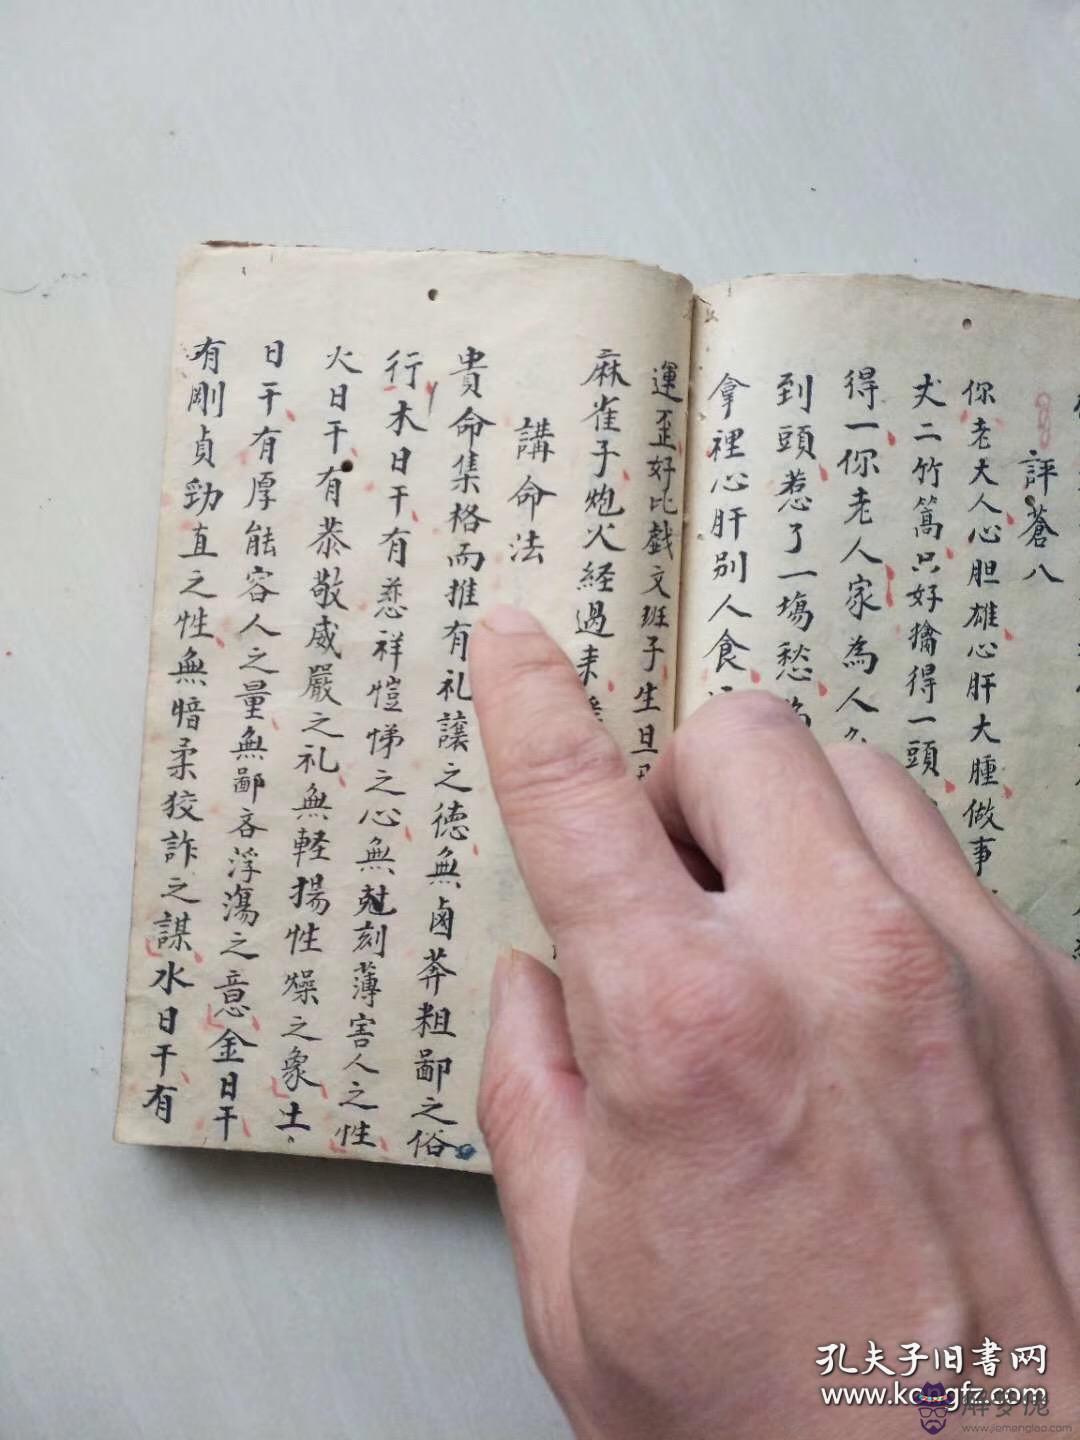 評蒼八
你老大人心胆雄心肝大腫做事
丈二竹篙只好擒得一頭
得一你老人家為人
到頭惹了一場愁
拿裡心肝別人食
運歪好比戲文班子生旦
麻雀子炮火経過来
講命法
貴命集格而推有礼讓之徳無鹵莽粗鄙之俗
行木日干有慈祥愷悌之心無尅刻薄害人之性
火日干有恭敬威嚴之礼無軽揚性燥之象土
日干有厚能容人之量無鄙吝浮蕩之意金日干
有剛貞勁直之性無暗柔狡詐之謀水日干有
孔夫子旧書网
www.kongfz.com
解梦佬
www.jiemenglao.com